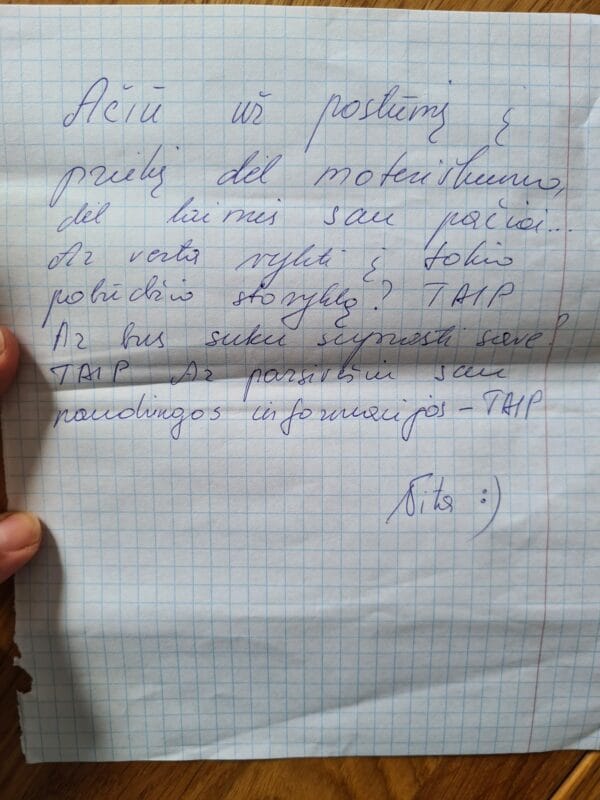 Ačiū už postūmį į
priekį dėl moteriškumo,
dėl laimės sau pačiai...
Ar verta vykti į tokio
pobūdžio stovyklą? TAIP
Ar bus sunku suprasti save?
TAIP Ar parsivešiu sau
naudingos informacijos - TAIP
:)